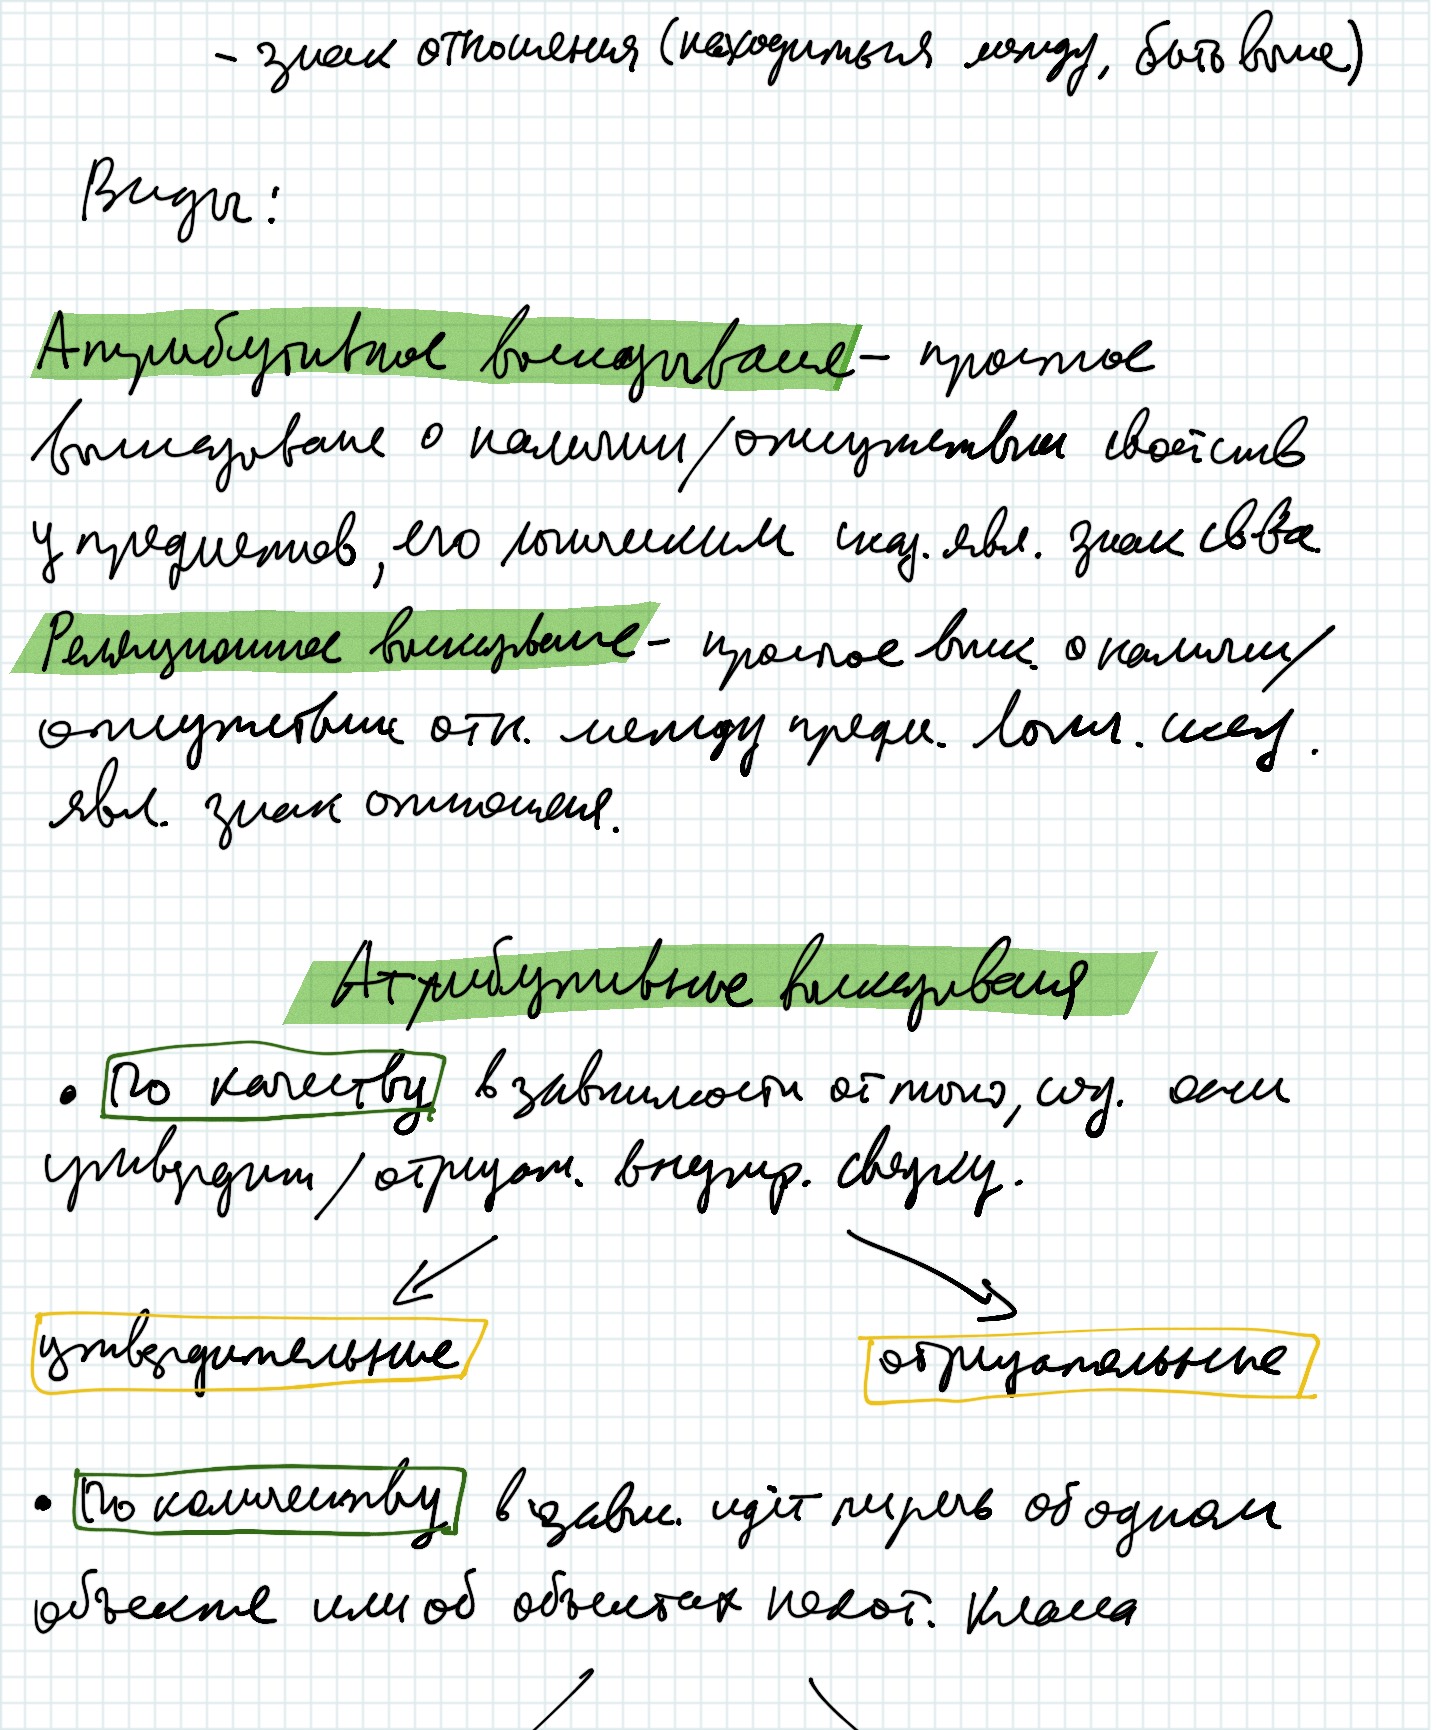 - знак отношения (находиться между, быть выше)
Виды:
Атрибутивное высказывание - простое
высказывание о наличии/отсутствии свойств
у предметов, его логическим сказ. явл. знак св-ва
Реляционное высказывание - простое выск. о наличии/
отсутствии отн. между предм. Логич. сказ.
явл. знак отношения.
Атрибутивные высказывания
• По качеству в зависимости от того,
утвердит/отрицат. внутр. связку.
утвердительные
отрицательные
• По количеству в завис. идёт ли речь об одном
объекте или об объектах некот. класса